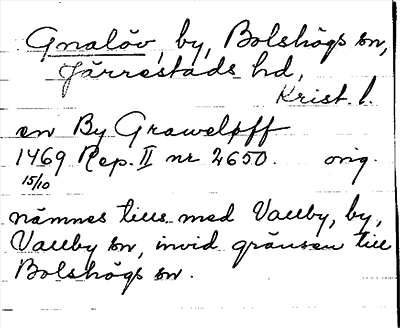 Gnalöv, by, Bolshögs sn,
Järrestads hd,
Krist. l.
en By Graweløff
1469 Rep. II nr 2650. orig.
15/10
nämnes tills med Vallby, by,
Vallby sn, invid gränsen till
Bolshögs sn.